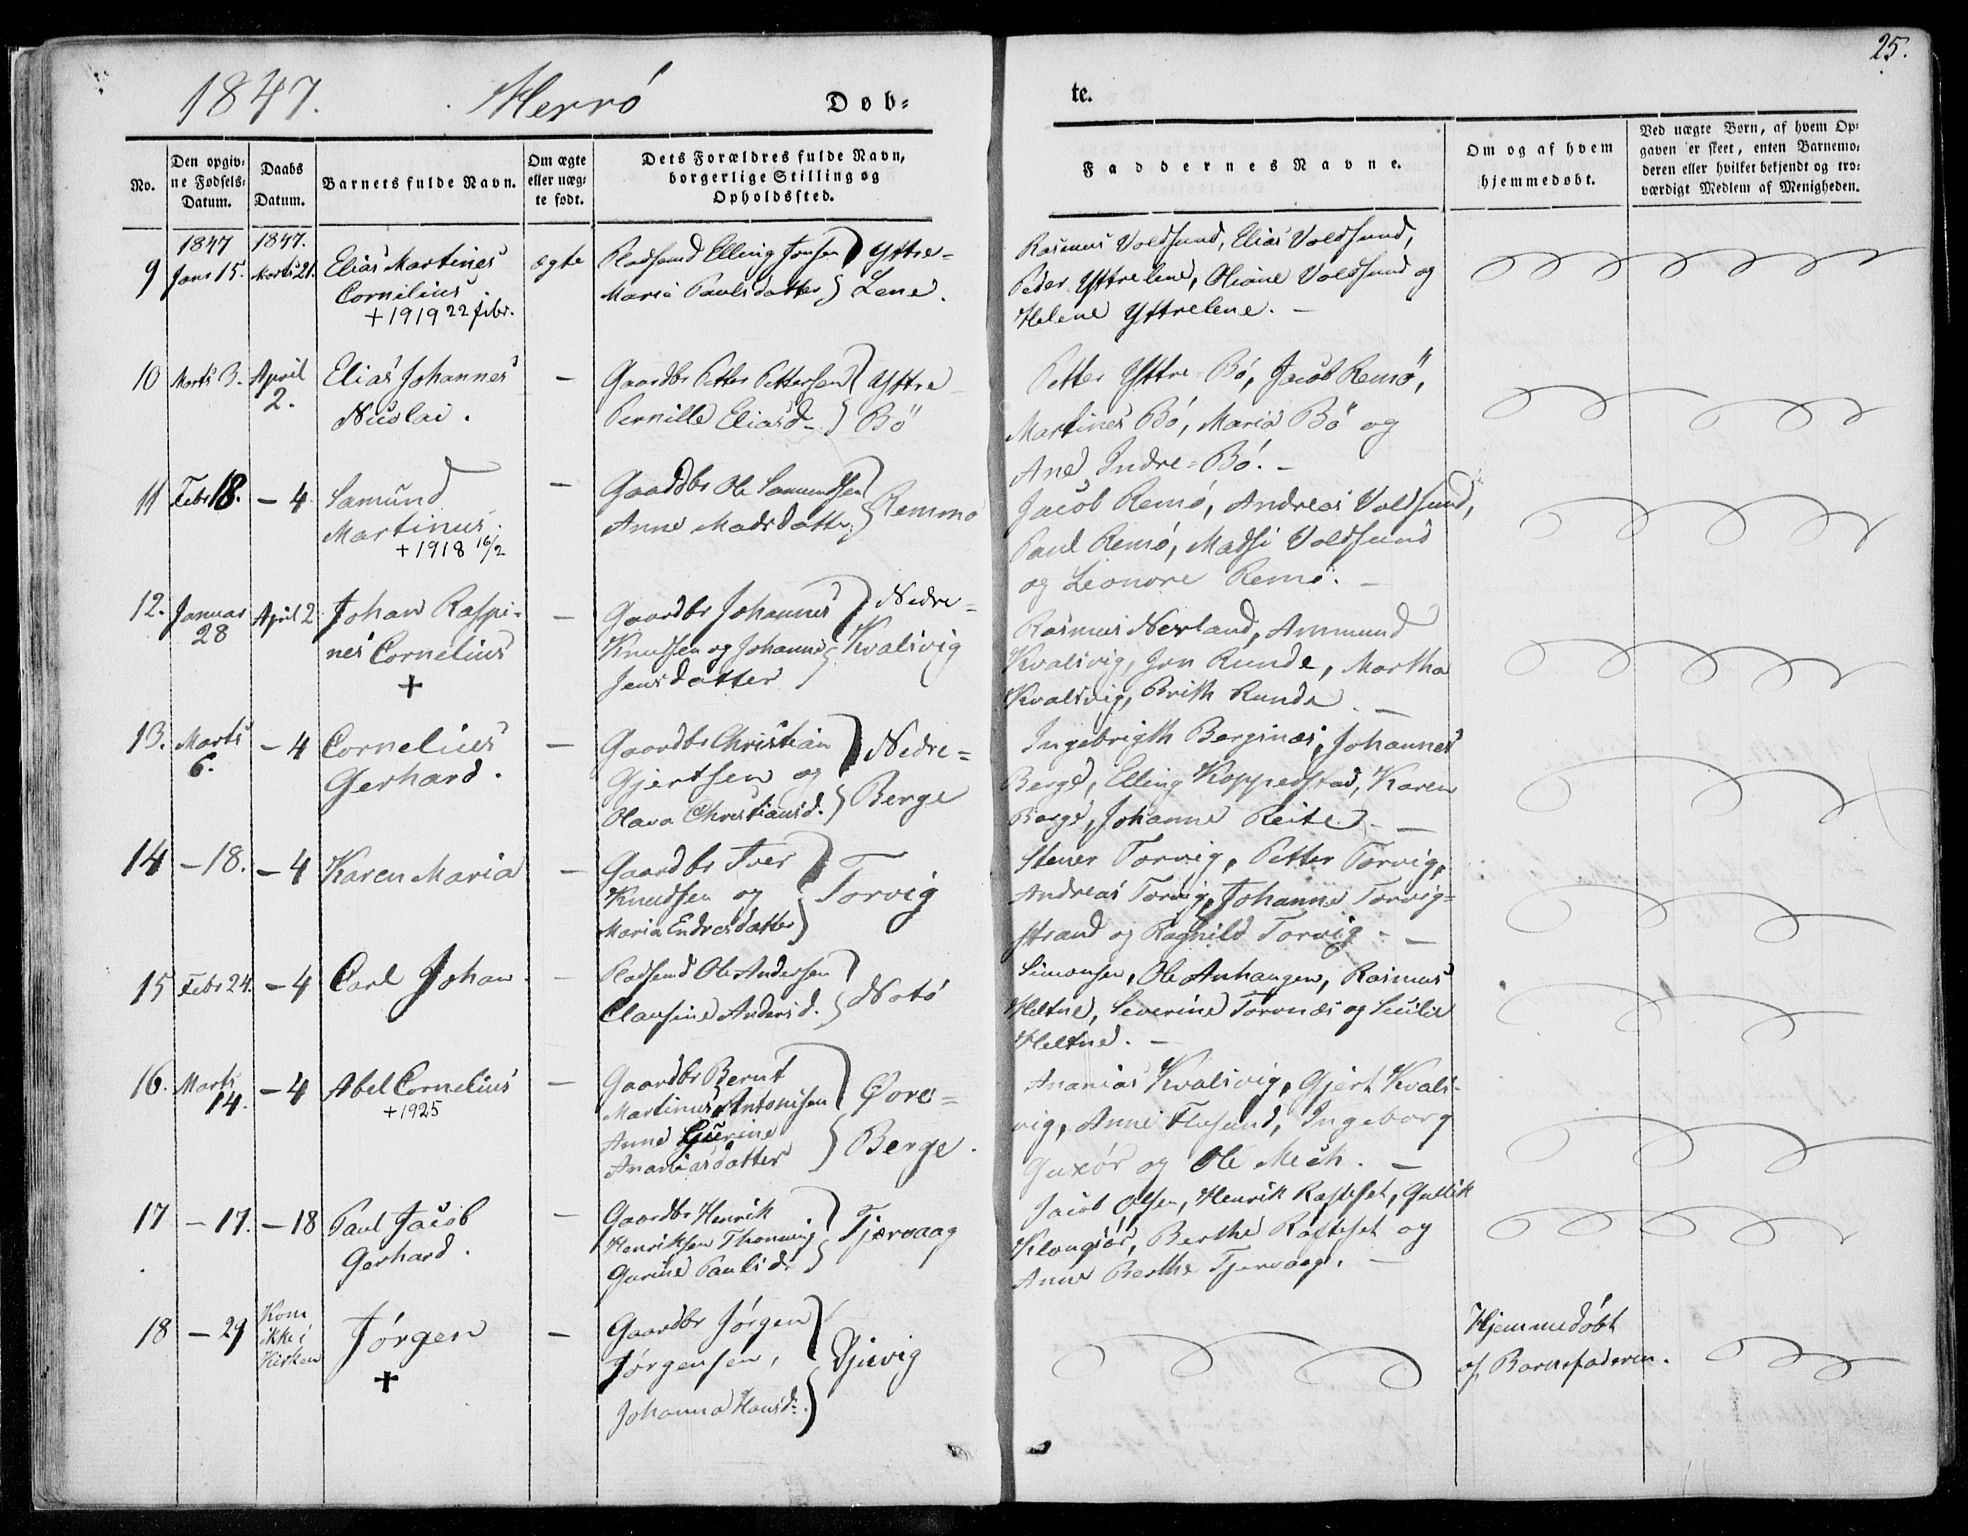 25.
1847. Herrö Døb-
te.
No.
Den opgiv-
ne Fødsels-
Datum.
Daabs
Datum.
Barnets fulde Navn.
Om ægte
eller uæg-
te født.
Dets Forældres fulde Navn,
borgerlige Stilling og
Opholdssted.
Faddernes Navne.
Om og af hvem
hjemmedøbt.
Ved uægte Børn, af hvem Op-
gaven er skeet, enten Barnemo-
deren eller hvilket bekjendt og tro-
værdigt Medlem af Menigheden.
9
1847
Janr 15.
1847.
Marts 21.
Elias Martines
Cornelius.
+ 1919 22 febr.
ægte
Pladsmd Elling Jonsen
Maria Paulsdatter
Yttre-
Lene.
Rasmus Voldsund, Elias Voldsund,
Peder Yttrelene, Oliane Voldsund og
Helene Yttrelene. –
10
Marts 3.
April
2.
Elias Johannes
Nicolai.
–
Gaardbr Petter Pettersen
Pernille Eliasd.
Yttre
Bö
Petter Yttre-Bó, Jacob Remö,
Martines Bó, Maria Bö og
Ane Indre-Bó. –
11
Febr 18.
– 4.
Samund
Martinus.
+ 1918 16/2
–
Gaardbr Ole Samundsen
Anne Madsdatter
Remmø
Jacob Remó, Andreas Voldsund,
Paul Remó, Madsi Voldsund
og Leonore Remø. –
12.
Januar
28
April 2
Johan Raspi-
nes Cornelius
+
–
Gaardbr Johannes
Knudsen og Johanne
Jensdatter
Nedre-
Kvalsvig
Rasmus Nerland, Ammund
Kvalsvig, Jon Runde, Martha
Kvalsvig, Brith Runde. –
13.
Marts
6.
– 4
Cornelius
Gerhard.
–
Gaardbr Christian
Gjertsen og
Olava Christiansd.
Nedre-
Berge
Ingebrigth Berginæs, Johannes
Berge, Elling Koppedstad, Karen
Berge, Johanne Reite. –
14
– 18.
– 4
Karen Maria
–
Gaardbr Iver
Knudsen og
Maria Endresdatter
Torvig
Stener Torvig, Petter Torvig,
Andreas Torvig, Johanne Torvig-
strand og Ragnild Torvig. –
15
Febr 24.
– 4
Carl Johan.
–
Pladsmd Ole Andersen
Clausine Andersd.
Notó
Simonsen, Ole Anhaugen, Rasmus
Heltne, Severine Torvnæs og Sicilie
Heltne. –
16.
Marts
14.
– 4
Abel Cornelius
+1925
–
Gaardbr Bernt
Martinus Antonisen
Anne Gurine
Ananiasdatter
Øvre-
Berge.
Ananias Kvalsvig, Gjert Kvals-
vig, Anne Flusund, Ingeborg
Gurør og Ole Mek. –
17
– 17.
– 18
Paul Jacob
Gerhard.
–
Gaardbr Henrik
Henriksen Thonning
Gurine Paulsdr
Tjervaag
Jacob Olsen, Henrik Rafteset, Gullik
Klungsör, Berthe Rafteset og
Anne Berthe Tjervaag. –
18
– 29
Kom
ikke i
Kirken
Jørgen
+
–
Gaardbr Jørgen
Jørgensen,
Johanna Hansd.
Djuvig
Hjemmedøbt
af Barnefaderen.